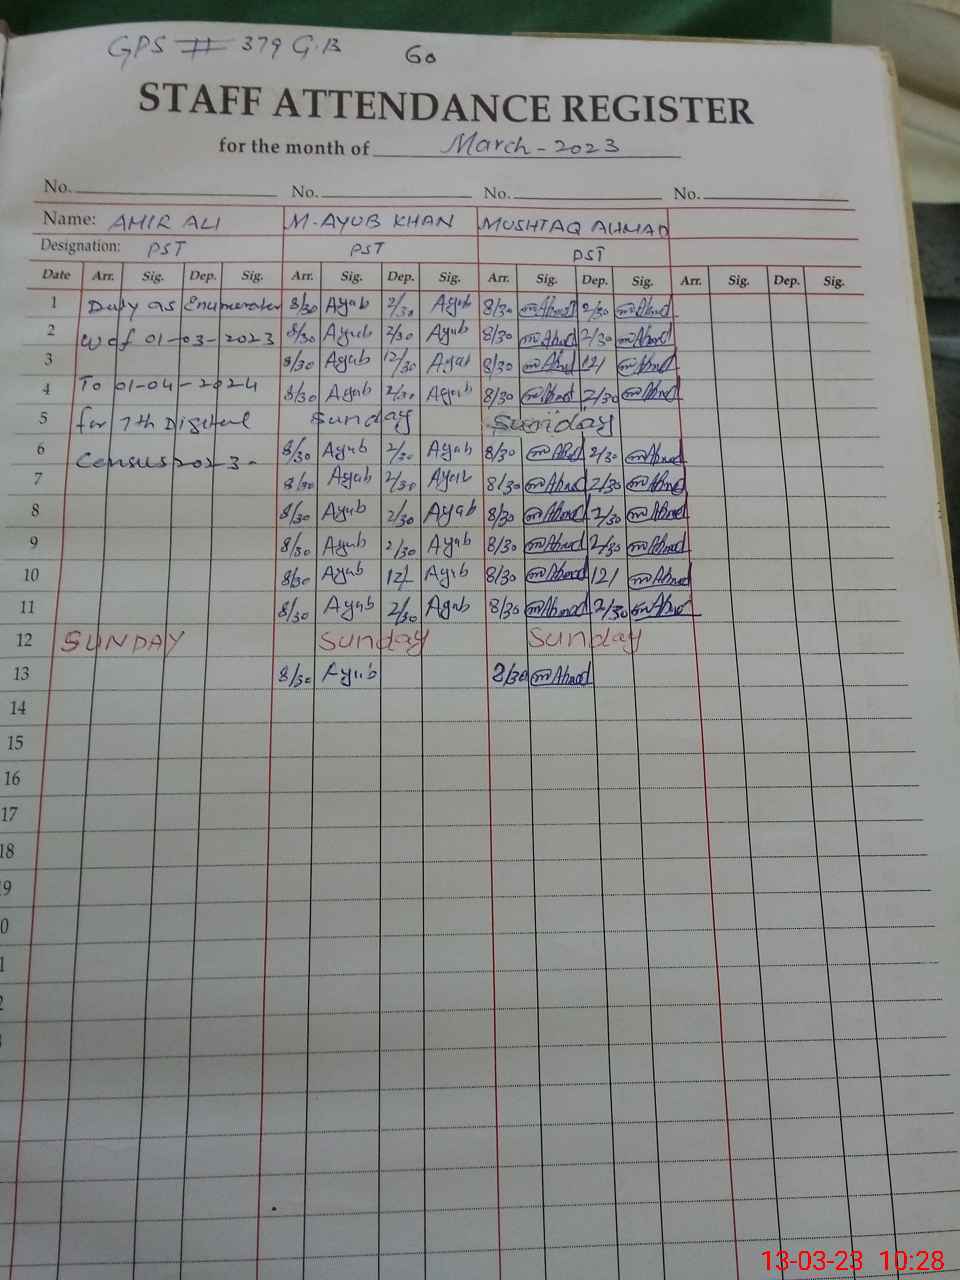 GPS # 379 G.B 60
STAFF ATTENDANCE REGISTER
for the month of March - 2023
No. No. No. No.
Name: AMIR ALI M. AYUB KHAN MUSHTAQ AHMAD
Designation: PST PST PST
Date Arr. Sig. Dep. Sig. Arr. Sig. Dep. Sig. Arr. Sig. Dep. Sig. Arr. Sig. Dep. Sig.
1 Duty as Enumerator 8/30 Ayub 2/30 Ayub 8/30 Ahmad 2/30 Ahmad
2 wef 01-03-2023 8/30 Ayub 2/30 Ayub 8/30 Ahmad 2/30 Ahmad
3 8/30 Ayub 12/30 Ayub 8/30 Ahmad 12/ Ahmad
4 To 01-04-2024 8/30 Ayub 2/30 Ayub 8/30 Ahmad 2/30 Ahmad
5 for 7th Digital Sunday Sunday
6 Census 2023- 8/30 Ayub 2/30 Ayub 8/30 Ahmad 2/30 Ahmad
7 8/30 Ayub 2/30 Ayub 8/30 Ahmad 2/30 Ahmad
8 8/30 Ayub 2/30 Ayub 8/30 Ahmad 2/30 Ahmad
9 8/30 Ayub 2/30 Ayub 8/30 Ahmad 2/30 Ahmad
10 8/30 Ayub 12/ Ayub 8/30 Ahmad 12/ Ahmad
11 8/30 Ayub 2/30 Ayub 8/30 Ahmad 2/30 Ahmad
12 SUNDAY Sunday Sunday
13 8/30 Ayub 8/30 Ahmad
14
15
16
17
18
9
0
1
2
3
13-03-23 10:28